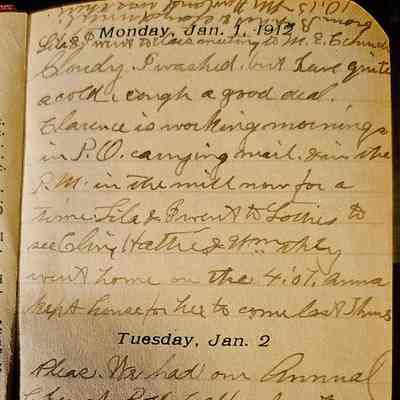 Monday, Jan. 1, 1912
Lila & I went to Class meeting to M. E. Church
Cloudy. I washed, but have quite
a cold & cough a good deal.
Clarence is working mornings
in P.O. carrying mail, & in the
P.M. in the mill now for a
time. Lila & I went to Lotties to
see Hattie & Wm they
went home on the 4:01. Anna
kept house for her to come last Thurs
Tuesday, Jan. 2
Pleas. We had our Annual